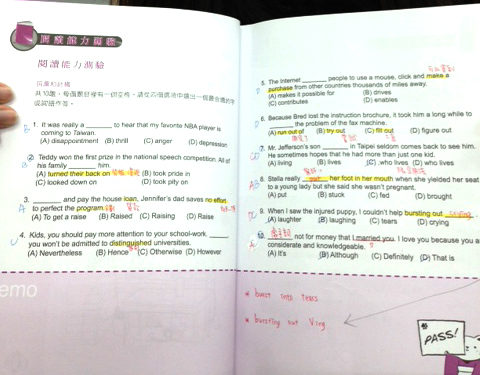 測驗能力評鑑
閱讀能力測驗
詞彙和結構
1. It was really a ______ to hear that my favorite NBA player is
coming to Taiwan.
(A) disappointment (B) thrill (C) anger (D) depression
2. Teddy won the first prize in the national speech competition. All of
his family ______ him.
(A) turned their back on (B) took pride in
(C) looked down on (D) took pity on
3. ______ and study the house loan, Jennifer's dad saves no effort
to perfect the program.
(A) To get a raise (B) Raised (C) Raising (D) Raise
4. Kids, you should pay more attention to your school-work. ______
you won't be admitted to distinguished universities.
(A) Nevertheless (B) Hence (C) Otherwise (D) However
emo
5. The Internet ______ people to use a mouse, click and make a
purchase from other countries thousands of miles away.
(A) makes it possible for (B) drives
(C) contributes (D) enables
6. Because Bred lost the instruction brochure, it took him a long while to
______ the problem of the fax machine.
(A) run out of (B) try out (C) fill out (D) figure out
7. Mr. Jefferson's son ______ in Taipei seldom comes back to see him.
He sometimes hopes that he had more than just one kid.
(A) living (B) lives (C) .who lives (D) who lives
8. Stella really put her foot in her mouth when she yielded her seat
to a young lady but she said she wasn't pregnant.
(A) put (B) stuck (C) fed (D) brought
9. When I saw the injured puppy, I couldn't help bursting out crying.
(A) laughter (B) laughing (C) tears (D) crying
10. ______ not for money that I married you. I love you because you are
considerate and knowledgeable.
(A) It's (B) Although (C) Definitely (D) That is
* burst into tears
* bursting out Ving.
PASS!